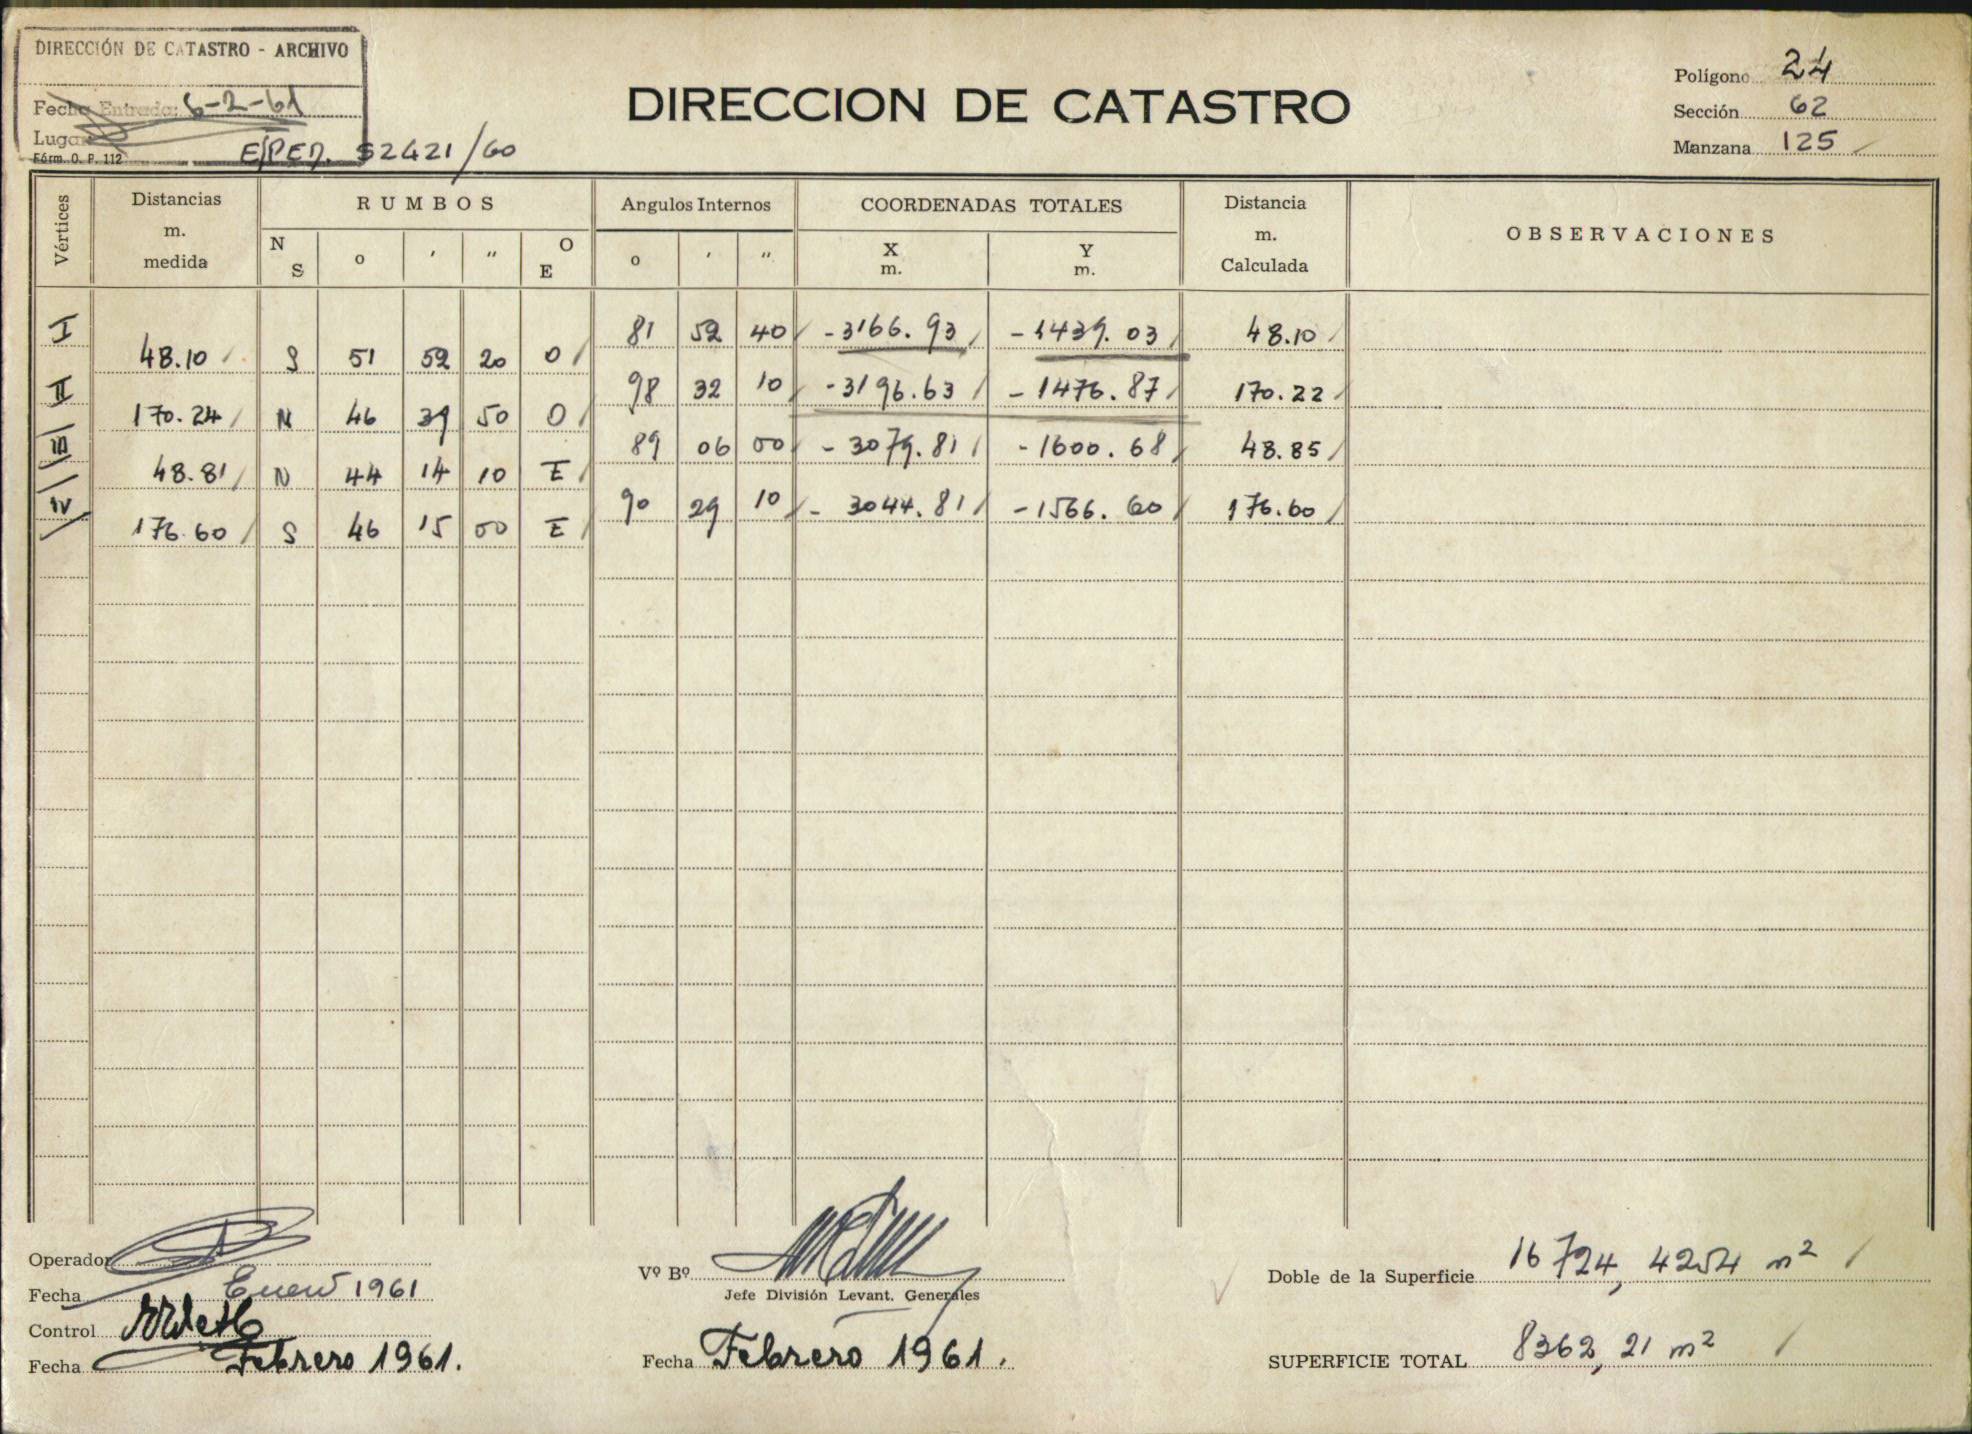 DIRECCIÓN DE CATASTRO - ARCHIVO
Fecha Entrada: 6-2-61
Lugar
Fórm. O. P. 112
EXPED. 52421/60
DIRECCION DE CATASTRO
Polígono 24
Sección 62
Manzana 125
Vértices Distancias m. medida RUMBOS Angulos Internos COORDENADAS TOTALES Distancia m. Calculada OBSERVACIONES
N S o ' " O E o ' " X m. Y m.
I 81 52 40 -3166.93 -1439.03 48.10
48.10 S 51 52 20 O
II 98 32 10 -3196.63 -1476.87 170.22
170.24 N 46 39 50 O
III 89 06 00 -3079.81 -1600.68 48.85
48.81 N 44 14 10 E
IV 90 29 10 -3044.81 -1566.60 176.60
176.60 S 46 15 00 E
Operador
Fecha Enero 1961
Control
Fecha Febrero 1961.
Vº Bº
Jefe División Levant. Generales
Fecha Febrero 1961.
Doble de la Superficie 16724,4254 m²
SUPERFICIE TOTAL 8362,21 m²